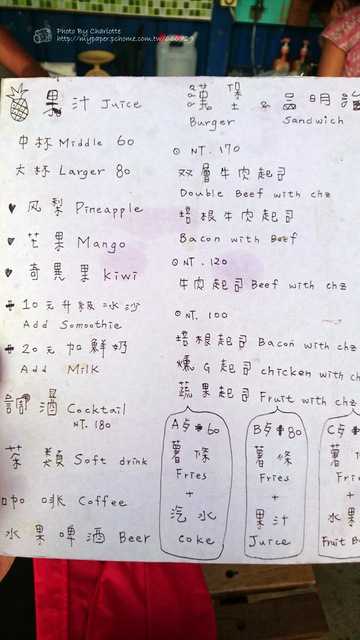 Photo By Charlotte
http://mypaper.pchome.com.tw/660929
果汁 Juice
中杯 Middle 60
大杯 Larger 80
♥ 凤梨 Pineapple
♥ 芒果 Mango
♥ 奇異果 kiwi
+ 10元升級冰沙
Add Somoothie
+ 20元加鮮奶
Add Milk
調酒 Cocktail
NT. 180
茶類 Soft drink
咖啡 Coffee
水果啤酒 Beer
漢堡 & 三明治
Burger Sandwich
⊙ NT. 170
双層牛肉起司
Double Beef with chz
培根牛肉起司
Bacon with Beef
⊙ NT. 120
牛肉起司 Beef with chz
⊙ NT. 100
培根起司 Bacon with chz
燻G起司 chicken with ch
蔬果起司 Fruit with chz
A+60
薯條
Fries
+
汽水
coke
B+80
薯條
Fries
+
果汁
Juice
C
薯
Fri
+
水果
Fruit B